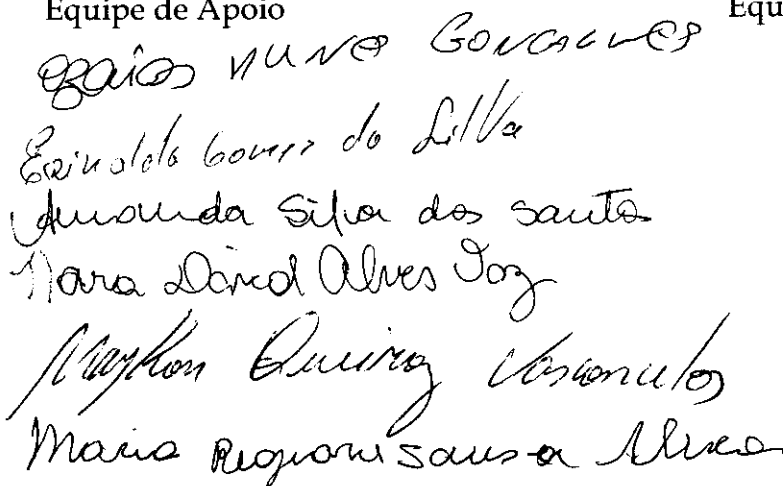 Equipe de Apoio Equ
Ozaias NUNES GONCALVES
Erinaldo Gomes da Silva
Amanda Silva dos Santos
Nara David Alves Vaz
Maykon Queiroz Vasconcelos
Maria Regiane Sousa